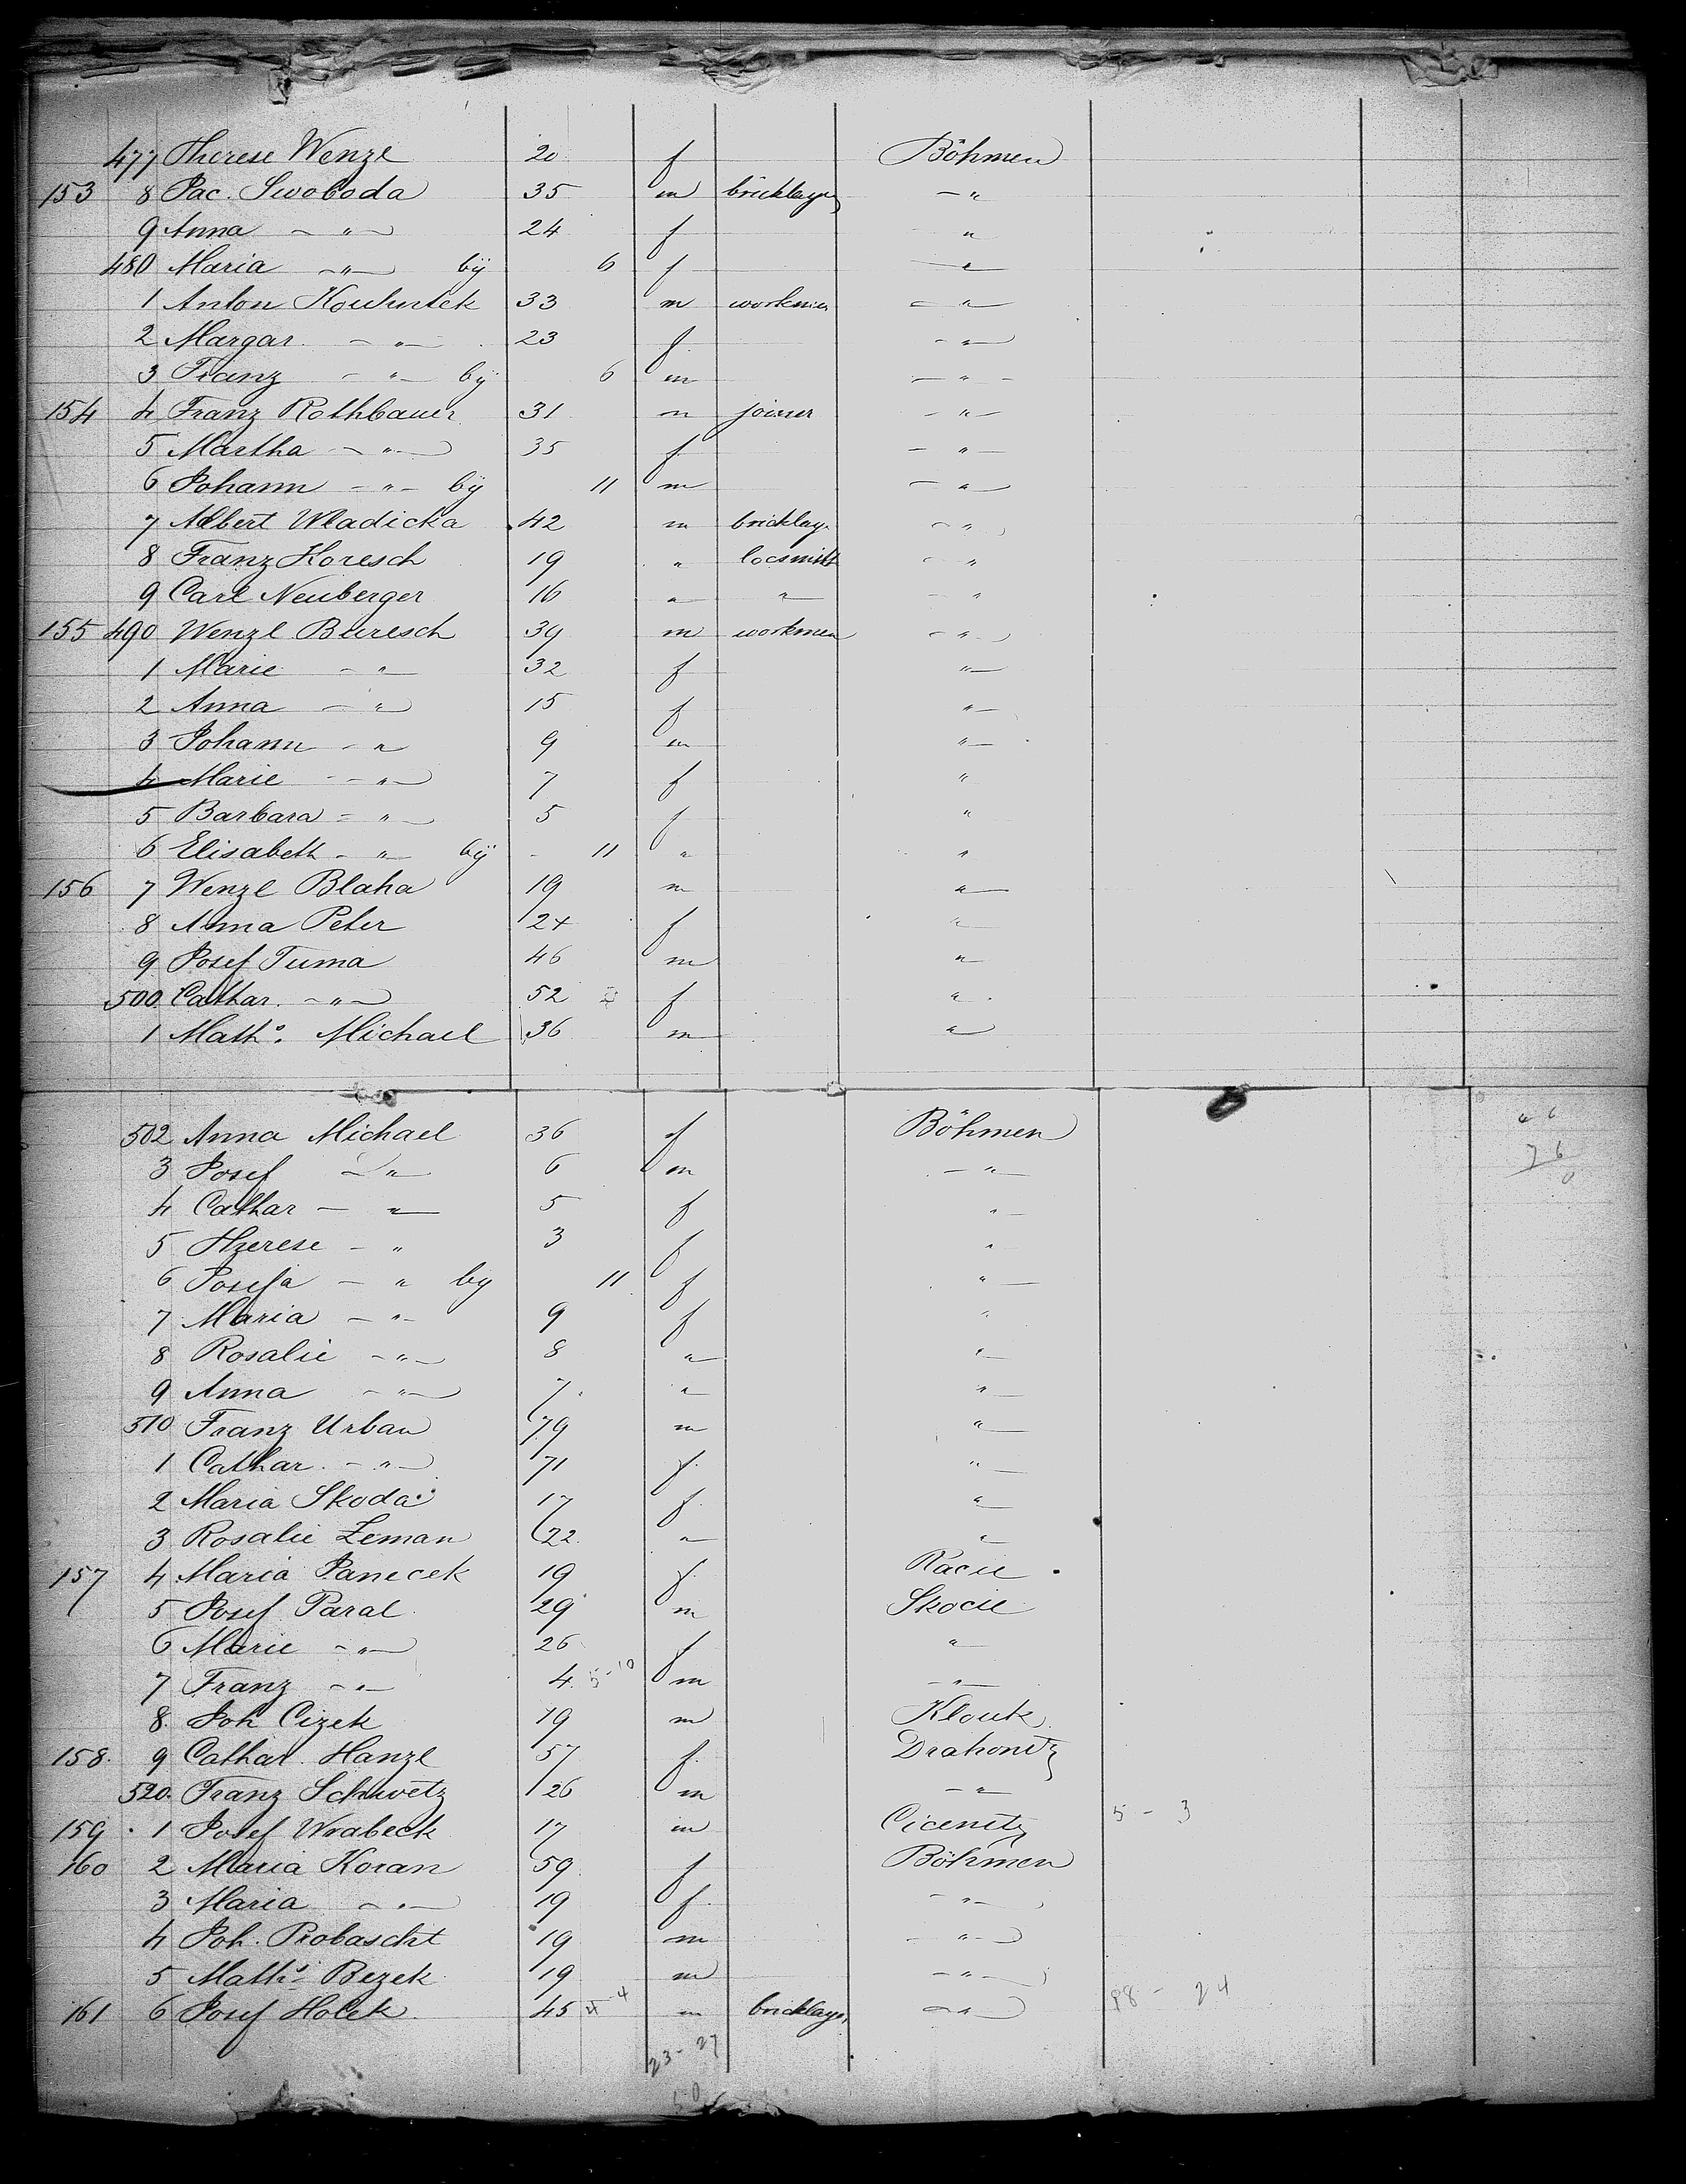 477 Therese Wenzl 20 f Böhmen
153 8 Jac. Swoboda 35 m bricklayer — " —
9 Anna — " — 24 f "
480 Maria — " — by 6 f — " —
1 Anton 33 m workmen — " —
2 Margar. — " — 23 f — " —
3 Franz — " — by 6 m — " —
154 4 Franz Rothbauer 31 m joiner — " —
5 Martha — " — 35 f — " —
6 Johann — " — by 11 m — " —
7 Albert Wladicka 42 m bricklay. — " —
8 Franz Koresch 19 " locsmith — " —
9 Carl Neuberger 16 " " — " —
155 490 Wenzl Buresch 39 m workmen — " —
1 Marie — " — 32 f " —
2 Anna — " — 15 f " —
3 Johann — " 9 m " —
4 Marie — " — 7 f "
5 Barbara — " — 5 f "
6 Elisabeth — " — by - 11 " "
156 7 Wenzl Blaha 19 m " —
8 Anna Peter 24 f "
9 Josef Tuma 46 m "
500 Cathar. — " — 52 f "
1 Math: Michael 36 m "
502 Anna Michael 36 f Böhmen
3 Josef — " — 6 m — " —
4 Cathar — " — 5 f " —
5 Therese — " 3 f "
6 Josefa — " by 11 f " —
7 Maria — " — 9 f "
8 Rosalie — " — 8 " " —
9 Anna — " — 7 " " —
510 Franz Urban 79 m " —
1 Cathar. — " — 71 f. " —
2 Maria Skoda 17 f " —
3 Rosalie Zeman 22 " " —
157 4 Maria Janecek 19 f Racic
5 Josef Paral 29 m Skocic
6 Marie — " — 26 f " —
7 Franz — " — 4 5-10 m — " —
8 Joh Cizek 19 m Klouk
158. 9 Cathar. Hanzl 57 f. Drahonitz
520. Franz Schwetz 26 m — " —
159 1 Josef Wrabeck 17 m Cicenitz 5 - 3
160 2 Maria Koran 59 f Böhmen
3 Maria — " — 19 f. — " —
4 Joh. Probascht 19 m — " —
5 Math: Bezek 19 m — " —
161 6 Josef Holek 45 4 m bricklayer — " — 98 - 24
23 - 27
50